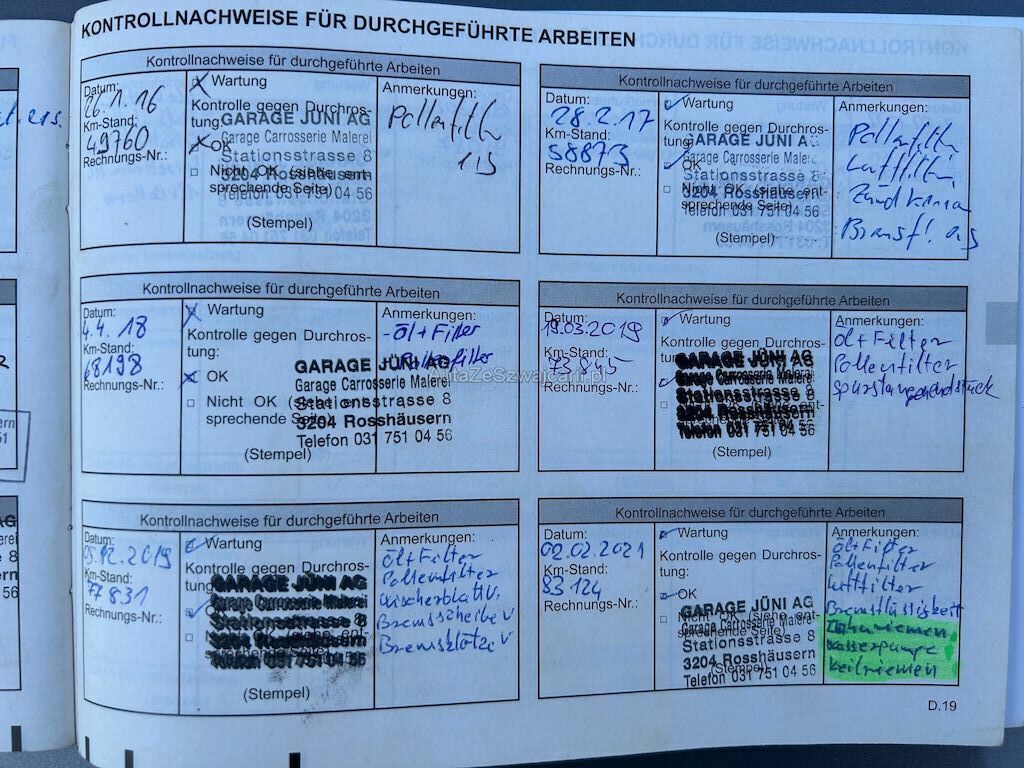 KONTROLLNACHWEISE FÜR DURCHGEFÜHRTE ARBEITEN
Kontrollnachweise für durchgeführte Arbeiten
Datum:
26.1.16
Km-Stand:
49760
Rechnungs-Nr.:
Wartung
Kontrolle gegen Durchros-
tung:
OK
Nicht OK (siehe ent-
sprechende Seite)
GARAGE JÜNI AG
Garage Carrosserie Malerei
Stationsstrasse 8
3204 Rosshäusern
Telefon 031 751 04 56
(Stempel)
Anmerkungen:
Pollenfilter
Kontrollnachweise für durchgeführte Arbeiten
Datum:
28.2.17
Km-Stand:
58873
Rechnungs-Nr.:
Wartung
Kontrolle gegen Durchros-
tung:
OK
Nicht OK (siehe ent-
sprechende Seite)
GARAGE JÜNI AG
Garage Carrosserie Malerei
Stationsstrasse 8
3204 Rosshäusern
Telefon 031 751 04 56
(Stempel)
Anmerkungen:
Pollenfilter
Luftfilter
Bremsfl.
Kontrollnachweise für durchgeführte Arbeiten
Datum:
4.4.18
Km-Stand:
68198
Rechnungs-Nr.:
Wartung
Kontrolle gegen Durchros-
tung:
OK
Nicht OK (siehe ent-
sprechende Seite)
GARAGE JÜNI AG
Garage Carrosserie Malerei
Stationsstrasse 8
3204 Rosshäusern
Telefon 031 751 04 56
(Stempel)
Anmerkungen:
- Öl+Filter
AutaZeSzwajcarii.pl
Kontrollnachweise für durchgeführte Arbeiten
Datum:
19.03.2019
Km-Stand:
73845
Rechnungs-Nr.:
Wartung
GARAGE JÜNI AG
Garage Carrosserie Malerei
Stationsstrasse 8
3204 Rosshäusern
Telefon 031 751 04 56
(Stempel)
Anmerkungen:
Öl+Filter
Pollenfilter
Kontrollnachweise für durchgeführte Arbeiten
Datum:
05.12.2019
Km-Stand:
77831
Rechnungs-Nr.:
Wartung
Kontrolle gegen Durchros-
tung:
GARAGE JÜNI AG
Garage Carrosserie Malerei
Stationsstrasse 8
3204 Rosshäusern
Telefon 031 751 04 56
(Stempel)
Anmerkungen:
Öl+Filter
Pollenfilter
Wischerblatt V.
Bremsscheibe V
Bremsklötze V
Kontrollnachweise für durchgeführte Arbeiten
Datum:
02.02.2021
Km-Stand:
83124
Rechnungs-Nr.:
Wartung
Kontrolle gegen Durchros-
tung:
OK
Nicht OK (siehe ent-
sprechende Seite)
GARAGE JÜNI AG
Garage Carrosserie Malerei
Stationsstrasse 8
3204 Rosshäusern
Telefon 031 751 04 56
(Stempel)
Anmerkungen:
Öl+Filter
Pollenfilter
Luftfilter
Bremsflüssigkeit
Zahnriemen
Wasserpumpe
Keilriemen
D.19